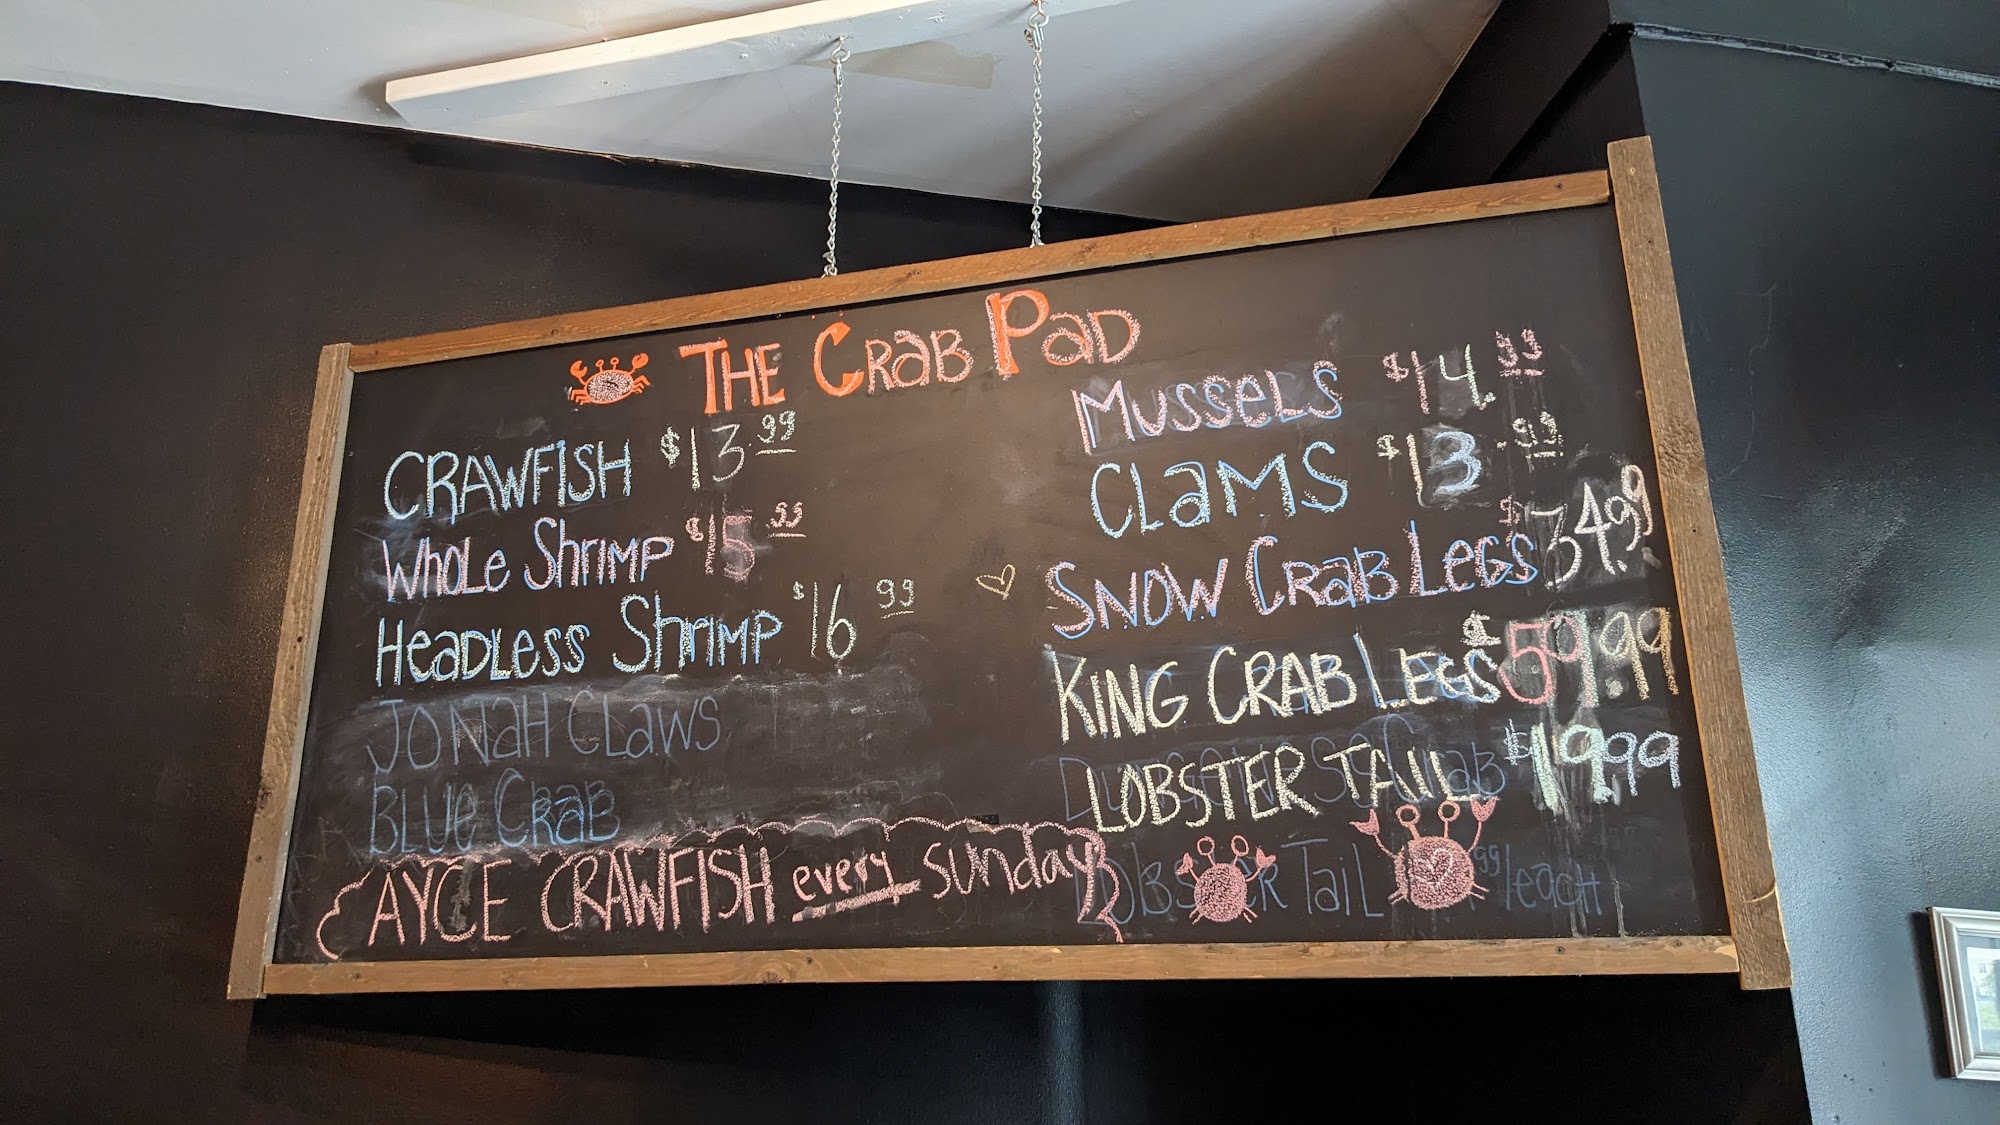 THE CRAB PAD
CRAWFISH $13.99
WHOLE SHRIMP $15.99
HEADLESS SHRIMP $16.99
JONAH CLAWS
BLUE CRAB
AYCE CRAWFISH every sunday
MUSSELS $14.99
CLAMS $13.99
SNOW CRAB LEGS $34.99
KING CRAB LEGS $59.99
LOBSTER TAIL $19.99
LOBSTER TAIL 99/each